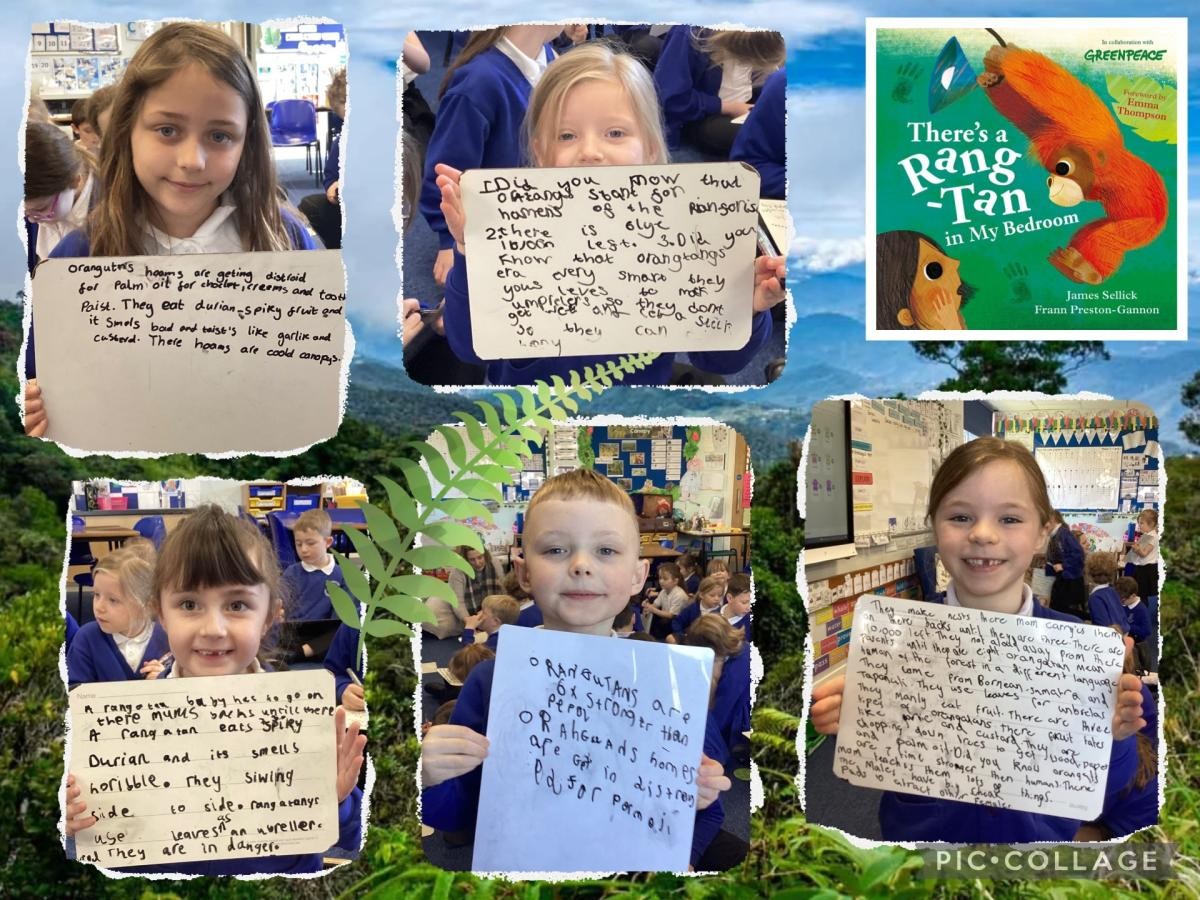 orangutns hooms are geting distroid
for Palm oil for choclet icreems and tooth
Paist. They eat durian-spiky fruit and
it smels bad and taist's like garlic and
custerd. There hooms are coold canopys.
1Did you know that
oratangs stand for
homens of the
2there is
left. 3.Did you
Know that orangtangs
era very smart they
yous leves to mak
umprelers so they dont
get wet and
so they can stick
In collaboration with
GREENPEACE
Foreword by
Emma
Thompson
There's a
Rang
-Tan
in My Bedroom
James Sellick
Frann Preston-Gannon
Name
A rangatan baby has to go on
there mums backs untill there
A rangatan eats spiky
Durian and its smells
horible. They siwing
side to side. rangatangs
use leaves as an ubreller.
and They are in danger.
ORANGUTANS are
6x strongtr than
PePol
ORANGUANS homes
are get in distroy
ed for Parmoil
They make nests there mom carrys them
on there backs until they are three. There are
left. They not aloud away from there
Parents until theyare eight orangatan mean
human of the forest in a different language
They come from Bornean-sumatra and
Tapanuli. They use leaves for umbrelas
They Manly eat fruit. There are three
tipes of orangatans There fruit tates
like garlic and custard. They are
chopping down trees to get wood, paper
and palm oil. Did you know orangatans
are 7 time stronger then humans. There
mom teach them lots of things.
the Males have big cheak
Pads to atract other females.
PIC•COLLAGE